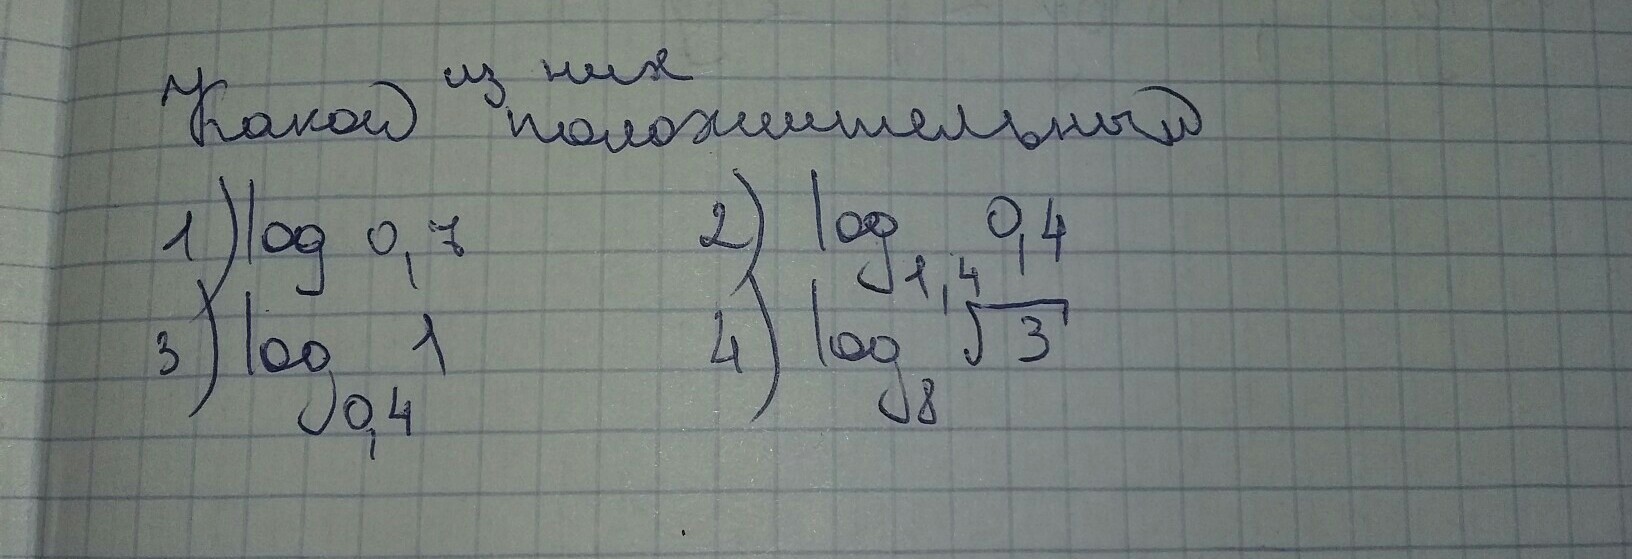 Какой из них положительный
1) log 0,7 2) log₁,₄ 0,4
3) log₀,₄ 1 4) log₈ √3